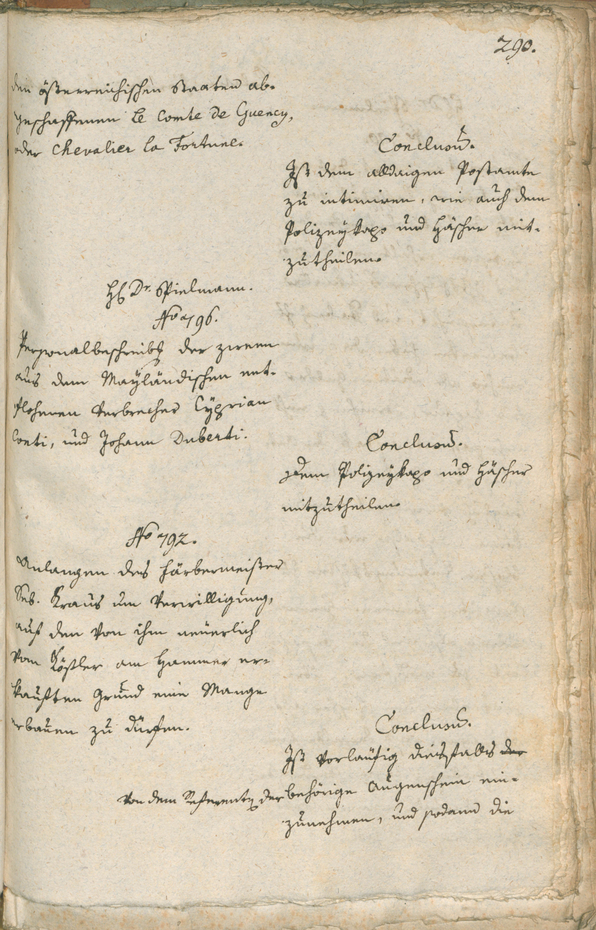 290.
den österreichischen Staaten ab-
geschaffenen Le Comte de Guency,
oder Chevalier la Fortune.
Conclusum.
Ist dem allhiesigen Postamte
zu intimiren, wie auch dem
Polizeykapo und Häscher mit-
zutheilen.
H. Dr. Spielmann.
No 796.
Personalbeschreibg der zween
aus dem Mayländischen ent-
flohenen Verbrecher Cyprian
Conti, und Johann Duberti.
Conclusum.
Dem Polizeykapo und Häscher
mitzutheilen.
No 792.
Anlangen des Färbermeister
Seb. Kraus um Verwilligung,
auf den von ihm neuerlich
vom Kößler am Hammer er-
kauften Grund eine Mange
erbauen zu dürfen.
Conclusum.
Ist vorläufig diesfalls der
von dem Referenten der behörige Augenschein ein-
zunehmen, und sodann die